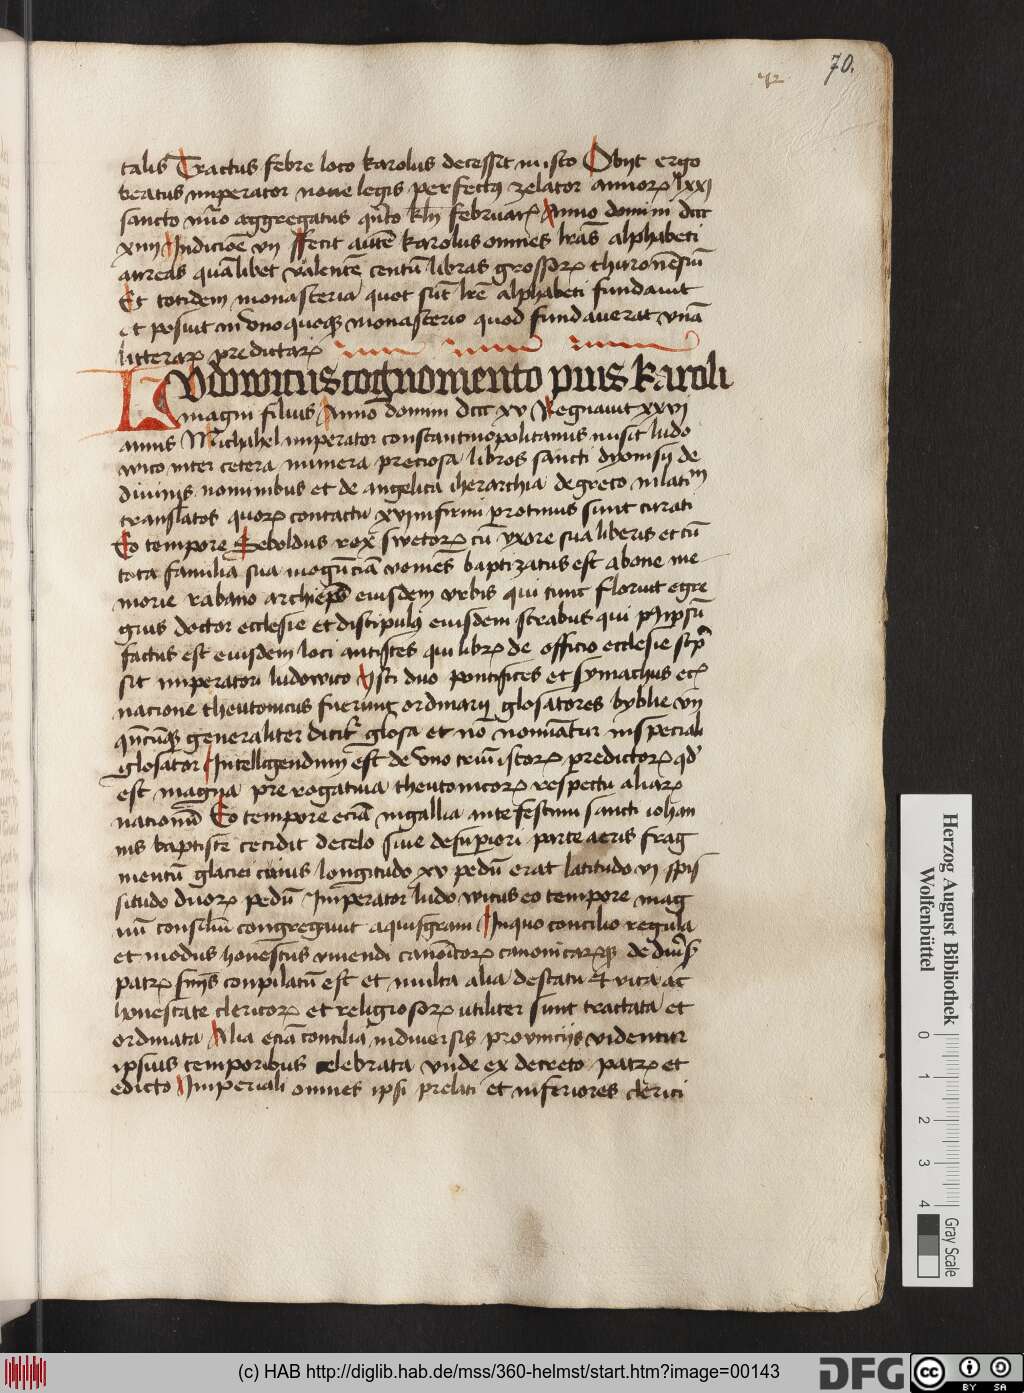 70.
42
talis Tractus febre loco karolus decessit in isto Obyt ergo
beatus imperator noue legis perfectus zelator annorꝝ lxxi
sancto nūo aggregatus qͥnto kl̄n februarꝝ Anno domini dccc
xiiij Indiciōe vij ffecit autē karolus omnes lr̄as alphabeti
aureas quālibet valentē centū libras grossorꝝ thuronēsiū
Et totidem monasteria quot sūt lr̄e alphabeti fundauit
et posuit in vnoquoqꝫ monasterio quod fundauerat vnā
litterarꝝ predictarꝝ
LVdowicus cognomento pius karoli
magni filius Anno domini dccc xv Regnauit xxvi
annis Michahel imperator constantinopolitanus misit ludo
wico inter cetera munera preciosa libros sancti dyonisij de
diuinis nominibus et de angelica iherarchia de greco in latīm
translatos quorꝝ contactu xvi infirmi protinus sunt curati
Eo tempore Heboldus rex swetorꝝ cū vxore sua liberis et cū
tota familia sua mogūciā veniēs baptizatus est a bone me
morie rabano archiepō eiusdem vrbis qui tunc floruit egre
gius doctor ecclesie et discipulꝰ eiusdem strabus qui p9 ipsū
factus est eiusdem loci antistes qui librꝝ de officio ecclesie scͥp
sit imperatori ludowico Isti duo pontifices et symachus eciꝫ
nacione theutonicus fuerunt ordinarij glosatores byblie vn̄
qn̄cūqꝫ generaliter dicitꝛ glosa et nō nominatur in speciali
glosator Intelligendum est de vno triū istorꝝ predictorꝝ qd̄
est magna prerogatiua theutonicorꝝ respectu aliarꝝ
nacionū Eo tempore eciā in gallia ante festum sancti iohan
nis baptiste cecidit de celo siue de superiori parte aeris frag
mentū glaciei cuius longitudo xv pedū erat latitudo vi spis
situdo duorꝝ pedū Imperator ludowicus eo tempore mag
nū consiliū congregauit aquisgrani In quo concilio regula
et modus honestus viuendi canōicorꝝ canonicarꝝqꝫ de diu̓sꝭ
patrꝝ sm̄is conpilatū est et multa alia de statu et vita ac
honestate clericorꝝ et religiosorꝝ utiliter sunt tractata et
ordinata Alia eciā concilia in diuersis prouincijs videntur
ipsius temporibus celebrata vnde ex decreto patrꝝ et
edicto Imperiali omnes ipsi prelati et inferiores clerici
Herzog August Bibliothek
Wolfenbüttel
0 1 2 3 4
Gray Scale
(c) HAB http://diglib.hab.de/mss/360-helmst/start.htm?image=00143
DFG
cc BY SA